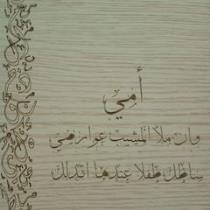 أمي
وان ملأ المشيب عوارضي
سأظل طفلا عندها اتدلل